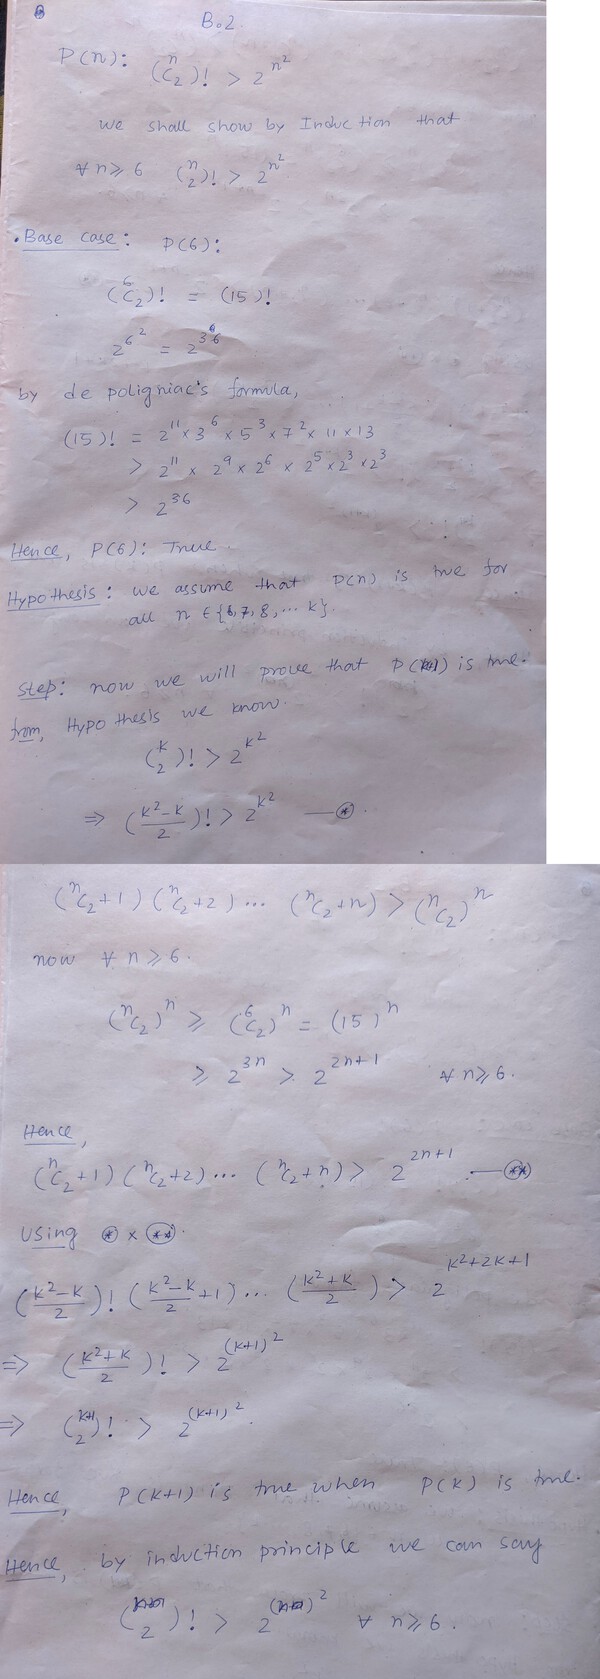 B.2
P(n): (ⁿC₂)! > 2^{n²}
we shall show by Induction that
∀ n ≥ 6 (n 2)! > 2^{n²}
• Base case: P(6):
(⁶C₂)! = (15)!
2^{6²} = 2^{36}
by de poligniac's formula,
(15)! = 2^{11} × 3^6 × 5^3 × 7^2 × 11 × 13
> 2^{11} × 2^9 × 2^6 × 2^5 × 2^3 × 2^3
> 2^{36}
Hence, P(6): True.
Hypothesis: we assume that P(n) is true for
all n ∈ {6, 7, 8, ... k}.
Step: now we will prove that P(k+1) is true.
from, Hypothesis we know.
(k 2)! > 2^{k²}
⇒ ((k²-k)/2)! > 2^{k²} —⊛.
(ⁿC₂+1) (ⁿC₂+2) ... (ⁿC₂+n) > (ⁿC₂)^n
now ∀ n ≥ 6.
(ⁿC₂)^n ≥ (⁶C₂)^n = (15)^n
≥ 2^{3n} > 2^{2n+1} ∀ n ≥ 6.
Hence,
(ⁿC₂+1) (ⁿC₂+2) ... (ⁿC₂+n) > 2^{2n+1} .—(**)
Using (*) × (**).
((k²-k)/2)! ((k²-k)/2 +1) ... ((k²+k)/2) > 2^{k²+2k+1}
⇒ ((k²+k)/2)! > 2^{(k+1)²}
⇒ (k+1 2)! > 2^{(k+1)²}.
Hence, P(k+1) is true when P(k) is true.
Hence, by induction principle we can say
( 2)! > 2^{( )²} ∀ n ≥ 6.